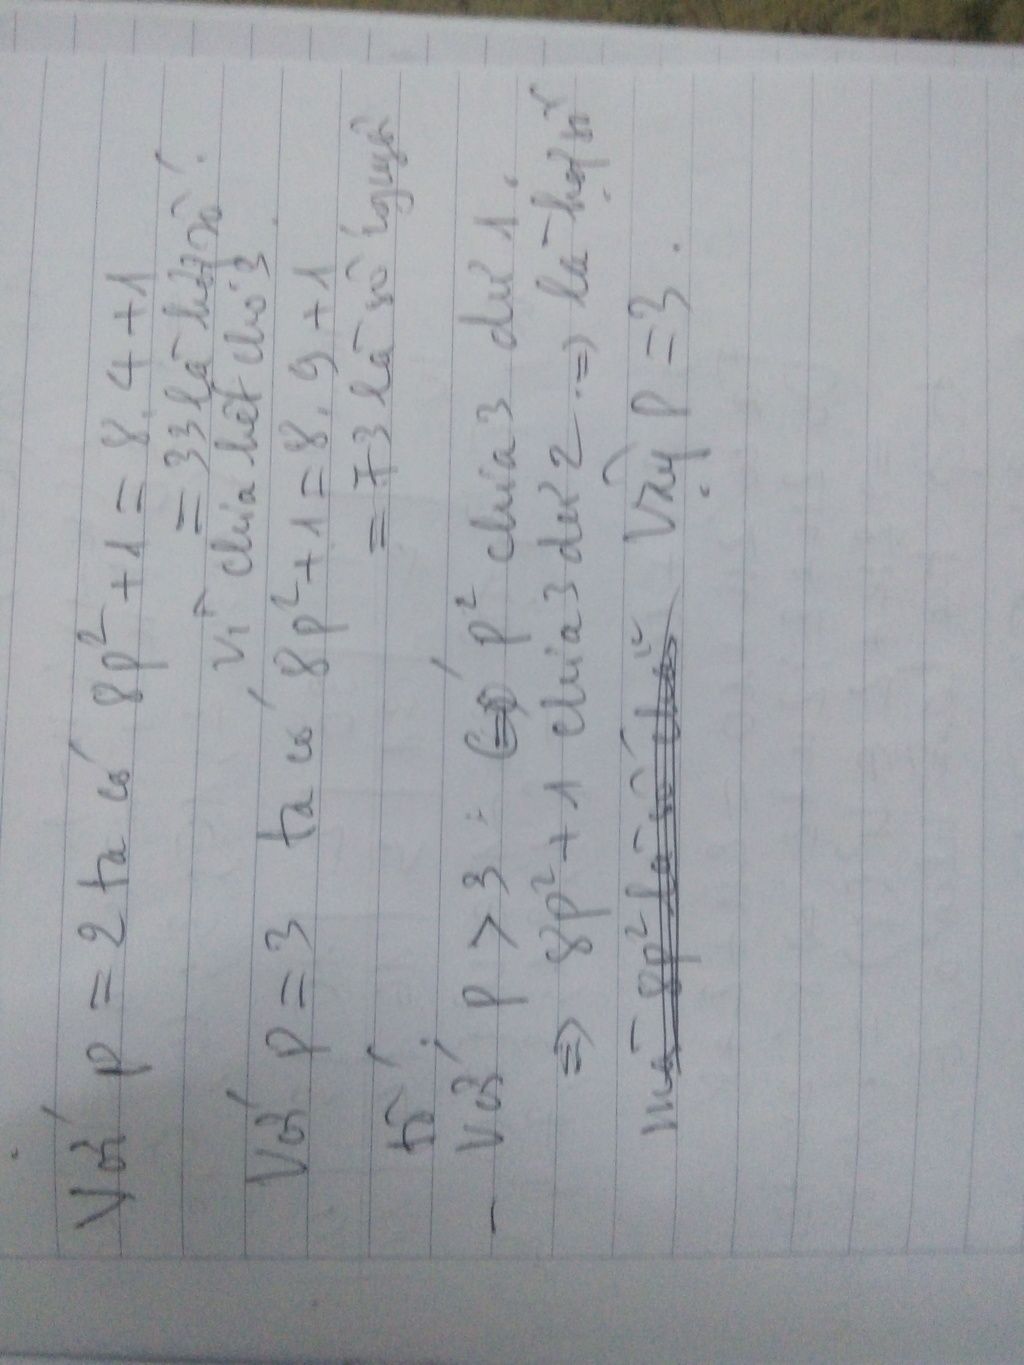 Với p = 2 ta có 8p² + 1 = 8.4 + 1
= 33 là hợp số.
Vì chia hết cho 3
Với p = 3 ta có 8p² + 1 = 8.9 + 1
= 73 là số nguyên
tố.
- Với p > 3: có p² chia 3 dư 1.
=> 8p² + 1 chia 3 dư 2 => là hợp số
mà 8p² là số chia Vậy p = 3.